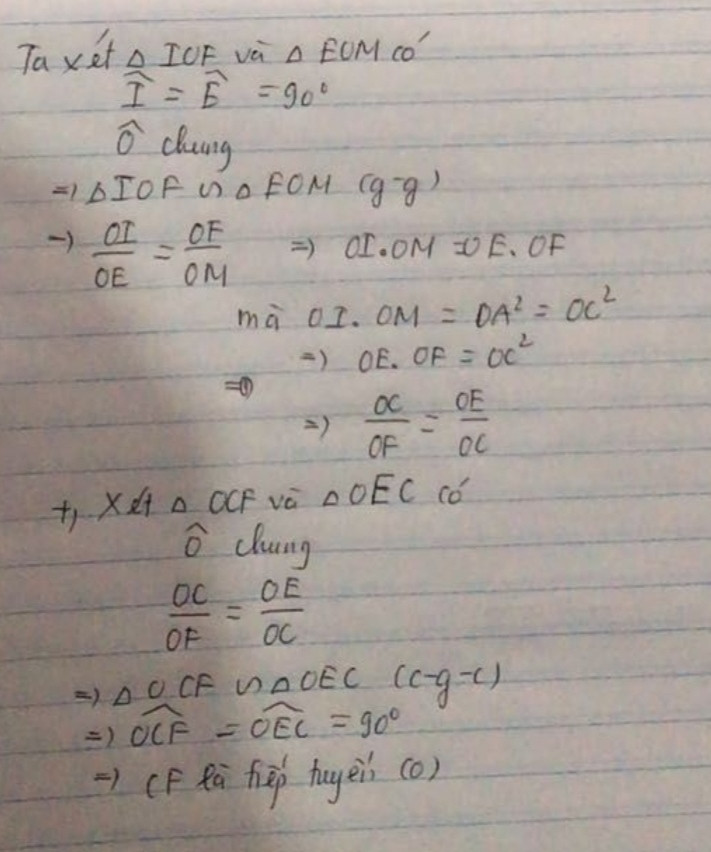 Ta xét Δ IOF và Δ EOM có
Î = Ê = 90°
Ô chung
=> Δ IOF ∽ Δ EOM (g-g)
=> OI/OE = OF/OM => OI.OM = OE.OF
mà OI.OM = OA² = OC²
=> OE.OF = OC²
=> OC/OF = OE/OC
+, Xét Δ OCF và Δ OEC có
Ô chung
OC/OF = OE/OC
=> Δ OCF ∽ Δ OEC (c-g-c)
=> \widehat{OCF} = \widehat{OEC} = 90°
=> CF là tiếp tuyến (O)